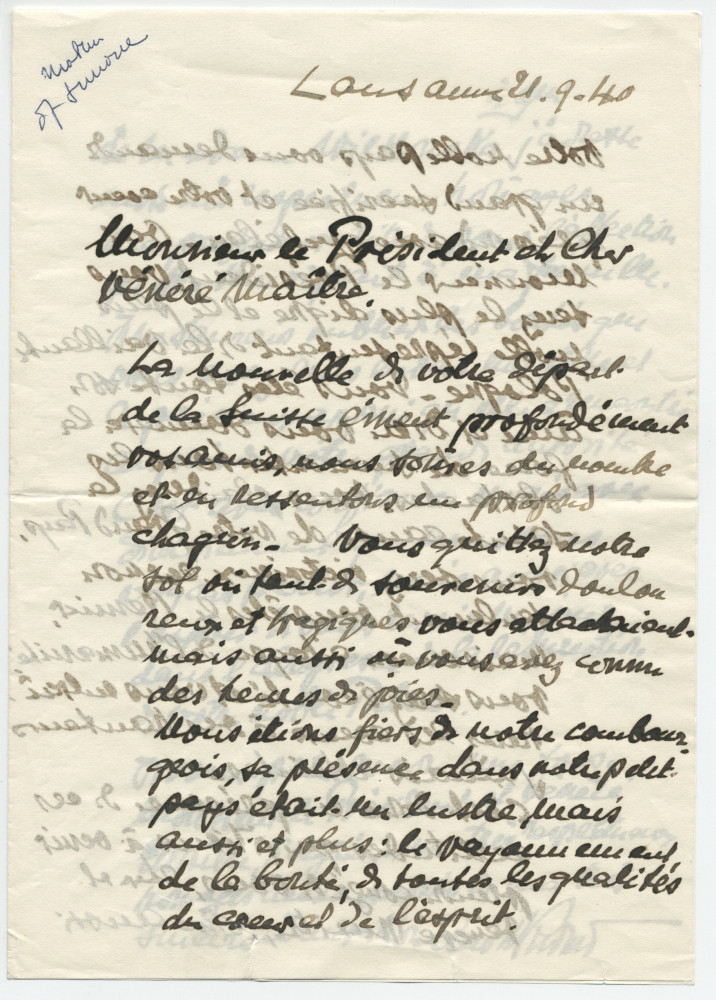 Lausanne 21.9.40
Monsieur le Président et Cher
Vénéré Maître.
La nouvelle de votre départ
de la Suisse émeut profondément
vos amis, nous sommes du nombre
et en ressentons un profond
chagrin - Vous quittez notre
sol où tant de souvenirs doulou
reux et tragiques vous attachaient.
mais aussi où vous avez connu
des heures de joies.
Nous étions fiers de notre combour-
geois, sa présence dans notre petit
pays était un lustre, mais
aussi et plus : le rayonnement,
de la bonté, de toutes les qualités
du coeur et de l'esprit.